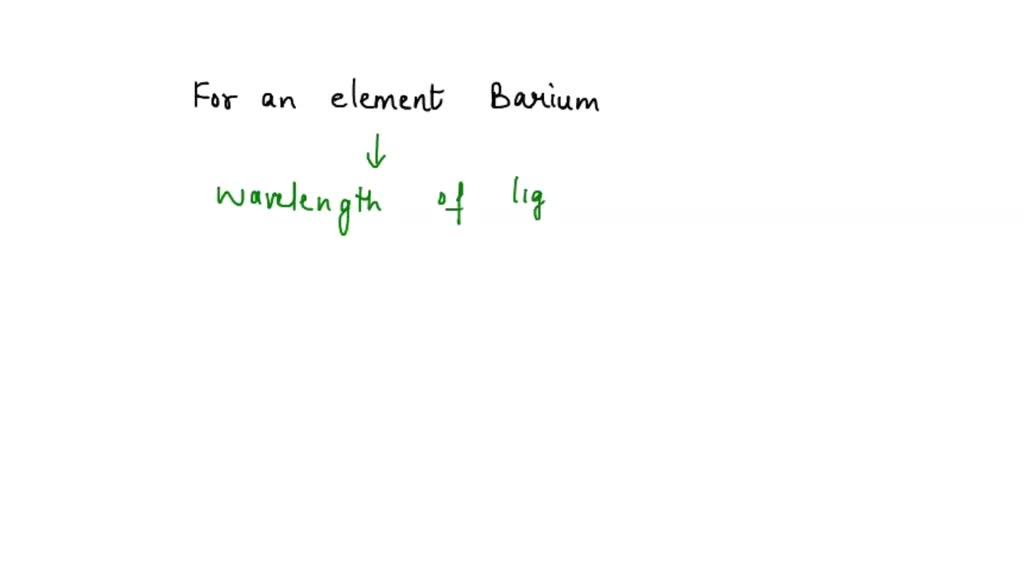 For an element Barium
↓
wavelength of lig